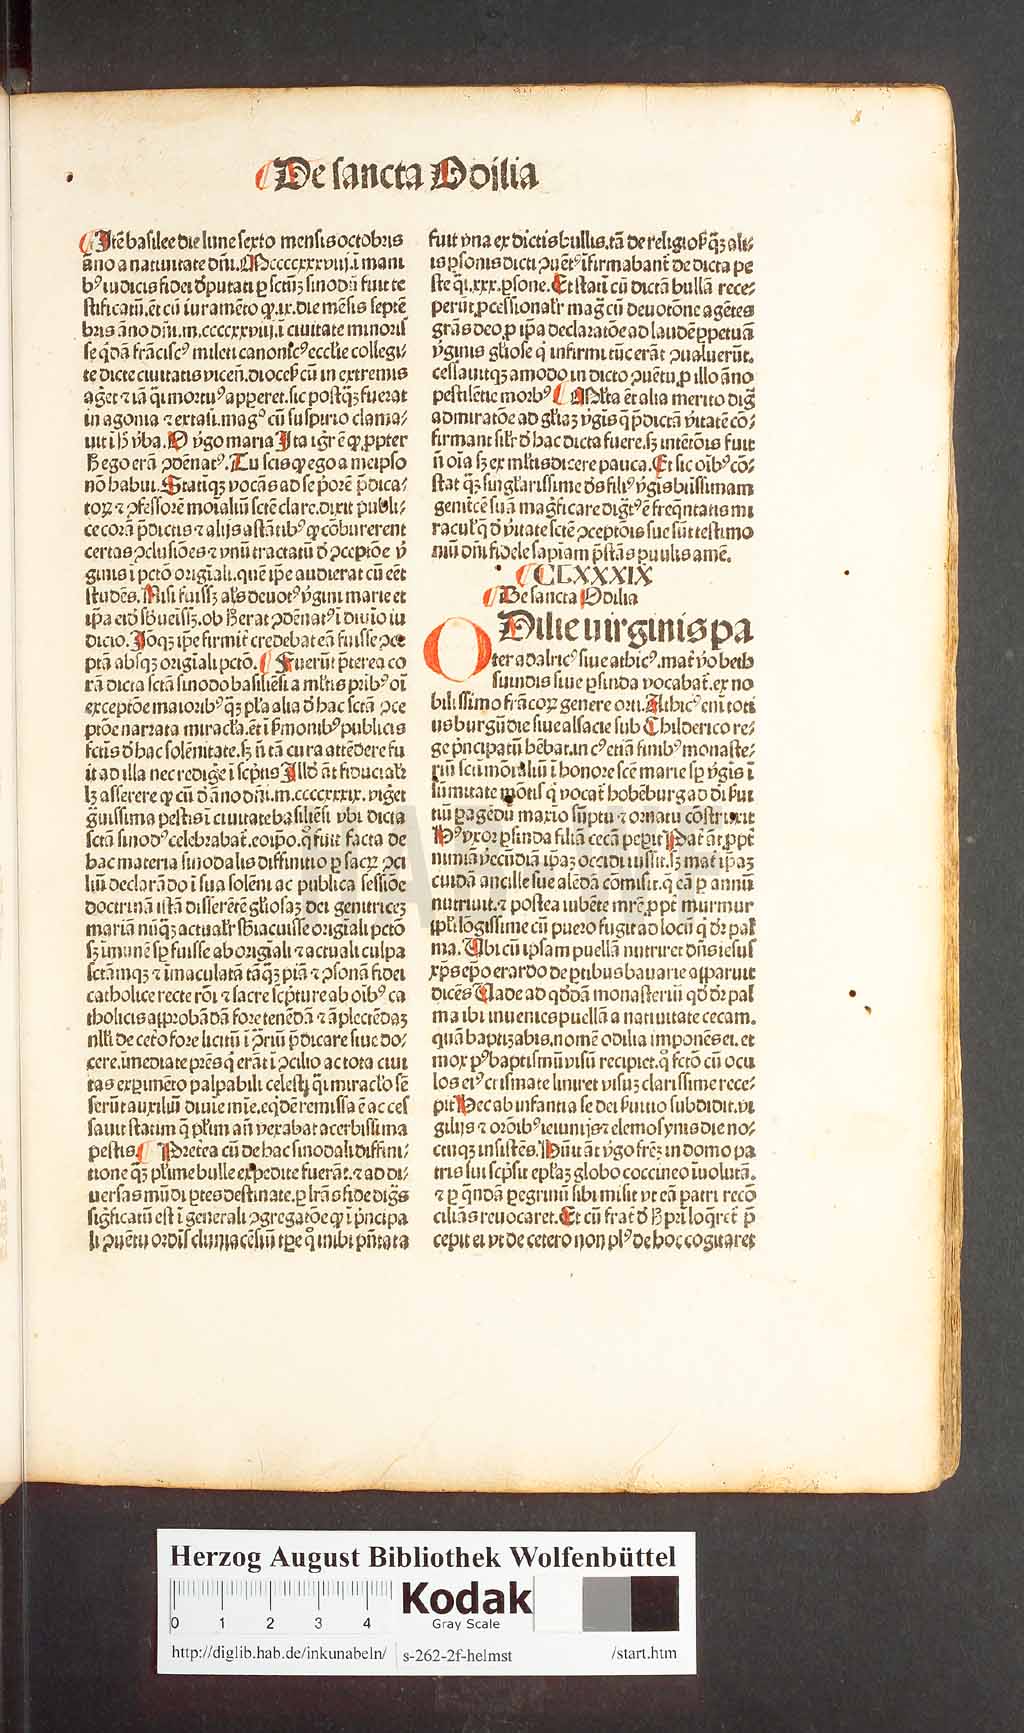 De sancta Odilia
Itē basilee die lune sexto mensis octobris
āno a natiuitate dñi. Mccccxxxviij. i mani
bꝰ iudicis fidei dputati p sctm̄ sinodū fuit te
stificatū. et cū iuramēto ꝙ. ix. die mēsis septē
bris āno dñi. m.ccccxxviij. ī ciuitate minoris
se qdā frāciscꝰ mileti canonicꝰ ecclie collegi⸗
te dicte ciuitatis vicen̄. diocesꝭ cū in extremis
aget ⁊ iā q̄i mortuꝰ apperet. sic postqꝫ fuerat
in agonia ⁊ extasi. magꝰ cū suspirio clama⸗
uit ī vba. O vgo maria Ita igr ē ꝙ ppter
ego erā ꝯdēnatꝰ. Tu scis ꝙ ego a meipso
nō habui. Statiqꝫ vocās ad se p̄orē p̄dica⸗
toꝝ ⁊ ꝯfessorē moīaliū sctēn clare. dixit publi⸗
ce corā p̄dictis ⁊ alijs astātibꝰ ꝙ cōburerent
certas ꝯclusiōes ⁊ vnū tractatū d ꝯceptiōe v̄
ginis ī pctō origīali. quē ip̄e audierat cū eēt
studēs. Nisi fuissꝫ als deuotꝰ v̄gini marie et
ip̄a eid sbueissꝫ. ob erat ꝯdēnatꝰ ī diuīo iu
dicio. Ioqꝫ ip̄e firmit̄ credebat eā fuisse ꝯce
ptā absqꝫ origīali pctō. Fuerūt p̄terea co
rā dicta sctā sinodo basiliēsi a mltis prībꝰ oī
exceptōe maioribꝰ qꝫ pla alia d hac sctā ꝯce
ptōe narrata miracla. et ī smonibꝰ publicis
fctis d hac solēnitate. sꝫ n̄ tā cura attēdere fu
it ad illa nec redige ī scptis Illd āt fiducialr
lꝫ asserere ꝙ cū d āno dñi. m.ccccxxxix. viget
guissima pestis ī ciuitate basiliēsi vbi dicta
sctā sinodꝰ celebrabat̄. eoip̄o. qꝰ fuit facta de
hac materia sinodalis diffinitio p sacꝝ ꝯci
liū declarādo ī sua solēni ac publica sessiōe
doctrinā istā disserētē gliosaꝫ dei genitricēꝫ
mariā nūqꝫ actualr sbiacuisse origīali pctō
sꝫ īmunē sp fuisse ab origīali ⁊ actuali culpa
sctāmqꝫ ⁊ īmaculatā tāqꝫ piā ⁊ ꝯsonā fidei
catholice recte rōi ⁊ sacre scpture ab oībꝰ ca
tholicis approbādā fore tenēdā ⁊ āplectēdaꝫ
nlli de ceto fore licitū ī ꝯriū p̄dicare siue do⸗
cere. īmediate prēs qͥ erāt ī ꝯcilio ac tota ciui
tas expimēto palpabili celesti qi miraclo sē
serūt auxiliū diuīe mīe. eqde remissa ē ac ces
sauit statim q plim an̄ vexabat acerbissima
pestis. Preterea cū de hac sinodali diffini⸗
tione qꝫ plime bulle expedite fuerāt. ⁊ ad di⸗
uersas mūdi ptes destinate. p lras fide digs
sigficatū est ī generali ꝯgregatōe ꝙ ī p̄ncipa
li ꝯuētu ordis cluniacēsiū tpe q̄ inibi pn̄tata
fuit vna ex dictis bullis. tā de religiosꝭ qꝫ ali⸗
is psonis dicti ꝯuētꝰ īfirmabant̄ de dicta pe
ste qi. xxx. psone. Et stati cū dictā bullā rece⸗
perūt. pcessionalr mag cū deuotōne agētes
grās deo. p ip̄a declaratōe ad laudē ppetuā
v̄ginis gliose qͥ infirmi tūc erāt ꝯualuerūt.
cessauitqꝫ amodo in dicto ꝯuētu. p illo āno
pestilētic morbꝰ Mlta ēt alia merito dig
admiratōe ad gliaꝫ v̄gis q p̄dictā v̄itatē cō⸗
firmant silr d hac dicta fuere. sꝫ intētōis fuit
n̄ oīa sꝫ ex mltis dicere pauca. Et sic oībꝰ cō⸗
stat qꝫ singlarissime ds filiꝰ v̄gis btissimam
genitcē suā magficare digtꝰ ē freqntatis mi
raculꝭ d v̄itate sctē ꝯceptōis sue sūt testimo
niū dñi fidele sapiam p̄stās puulis amē.
CLXXXIX
De sancta Odilia
Odilie uirginis pa
ter adalricꝰ siue athicꝰ. mat v̄o beth
suindis siue psinda vocabat̄. ex no
bilissimo frācoꝝ genere orti. Athicꝰ eni toti
us burgūdie siue alsacie sub Childerico re⸗
ge p̄ncipatū hēbat. in cꝰ etiā finibꝰ monaste⸗
riū sctimōialiū ī honore scē marie sp v̄gis ī
sūmitate mōtis q̄ vocat̄ hohēburg ad dī fui
tiū pagēdū maxīo sūptu ⁊ ornatu cōstruxit
Hꝰ vxor psinda filiā cecā pepit Pat̄ āt. ppt̄
nimiā v̄ecūdiā ip̄aꝫ occidi iussit. sꝫ mat̄ ip̄aꝫ
cuidā ancille sue alēdā cōmisit. q eā p annū
nutriuit. ⁊ postea iubēte mrē. ppt̄ murmur
ipli lōgissime cū puero fugit ad locū q dr pal
ma. Ubi cū ipsam puellā nutriret dñs iesus
xp̄s ep̄o erardo de ptibus bauarie apparuit
dicēs Uade ad qddā monasteriū qd dr pal
ma ibi inuenies puellā a natiuitate cecam.
quā baptizabis. nomē odilia imponēs ei. et
mox pꝰ baptismū visū recipiet. qꝰ fctō cū ocu
los eiꝰ crismate liniret visuꝫ clarissime rece⸗
pit Hec ab infantia se dei suitio subdidit. vi
gilijs ⁊ orōibꝰ ieiunijs ⁊ elemosynis die no⸗
ctuqꝫ insistēs. Hūit āt v̄go frēꝫ in domo pa
tris sui scpsit eplaꝫ globo coccineo īuolutā.
⁊ p qndā pegrinū sibi misit vt eā patri recō
cilias reuocaret. Et cū frat̄ d pri loqret p̄
cepit ei vt de cetero non plꝰ de hoc cogitaret
Herzog August Bibliothek Wolfenbüttel
0 1 2 3 4
Kodak
Gray Scale
http://diglib.hab.de/inkunabeln/ s-262-2f-helmst /start.htm
HAB WF